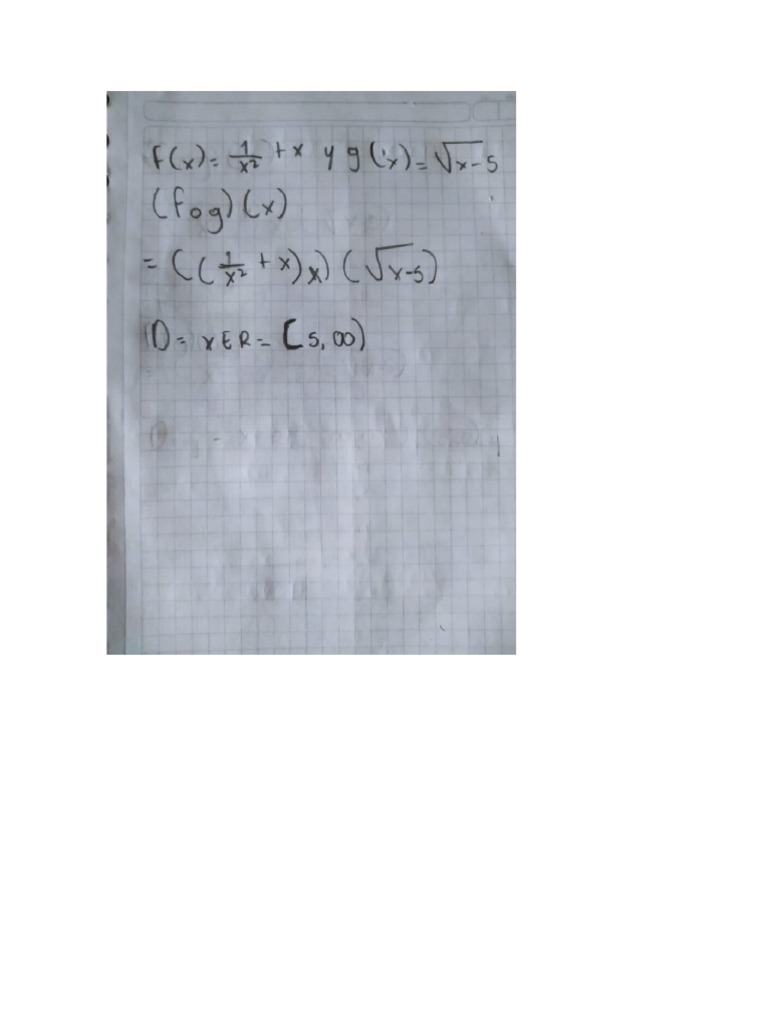 F(x) = 1/x² + x y g(x) = √x-5
(fog)(x)
= ((1/x² + x)x)(√x-5)
D = x E R = [5, ∞)